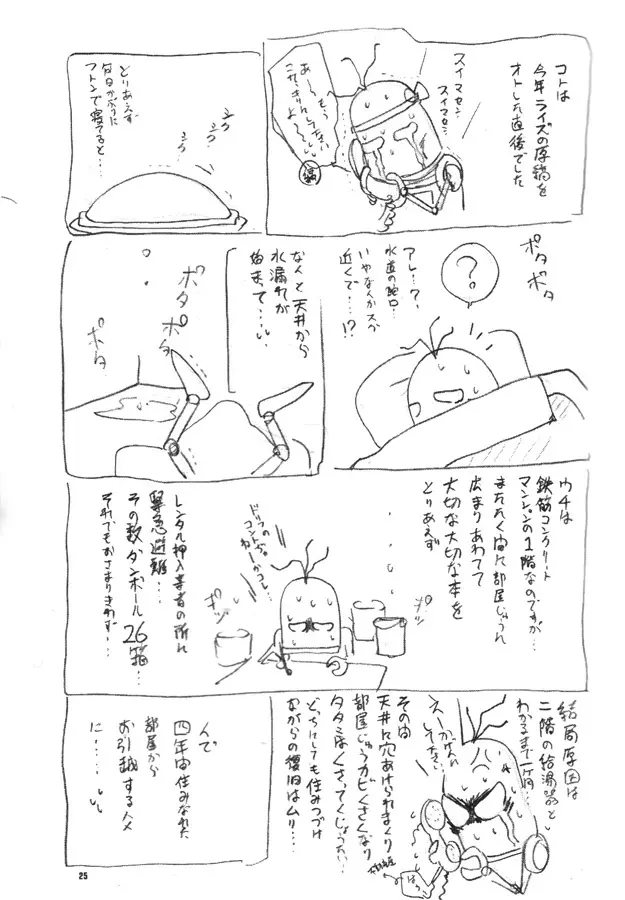 コトは
今年ライズの原稿を
オトした直後でした
スイマセン
スイマセン…
あ〜〜もう
これっきりにしなさい
よ〜〜
編
とりあえず
何日かぶりに
フトンで寝てると…
ポタ
ポタ
?
アレ…?
水道の蛇口…
いやなんかスゴ
近くで…!?
なんと天井から
水漏れが
始まって……
ポタ
ポタ
ポタ
ウチは
鉄筋コンクリート
マンションの1階なのですが…
またたく間に部屋じゅうに
広まりあわてて
大切な大切な本を
とりあえず
ポッ
ポッ
ドリフの
コントか
レンタル押入業者の所に
緊急避難…
その数ダンボール26箱…
それでもおさまりきらず…
結局原因は
二階の給湯器と
わかるまで一ヶ月…
その間
天井に穴あけられまくり
部屋じゅうカビくさくなり
タタミはくさってくじょう
どっちにしても住みつづけ
ながらの復旧はムリ…
んで
四年間住みなれた
部屋から
お引越するハメ
に……
25